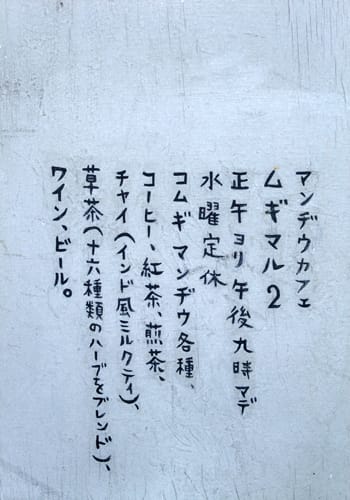 マンヂウカフェ
ムギマル2
正午ヨリ午後九時マデ
水曜定休
コムギマンヂウ各種、
コーヒー、紅茶、煎茶、
チャイ(インド風ミルクティ)、
草茶(十六種類のハーブをブレンド)、
ワイン、ビール。